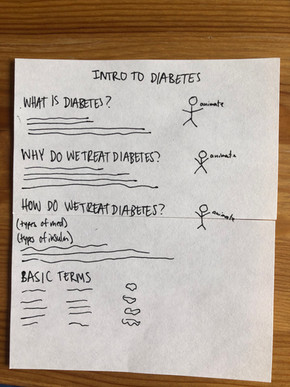 INTRO TO DIABETES
WHAT IS DIABETES?
animate
WHY DO WE TREAT DIABETES?
animate
HOW DO WE TREAT DIABETES?
animate
(types of med)
(types of insulin)
BASIC TERMS